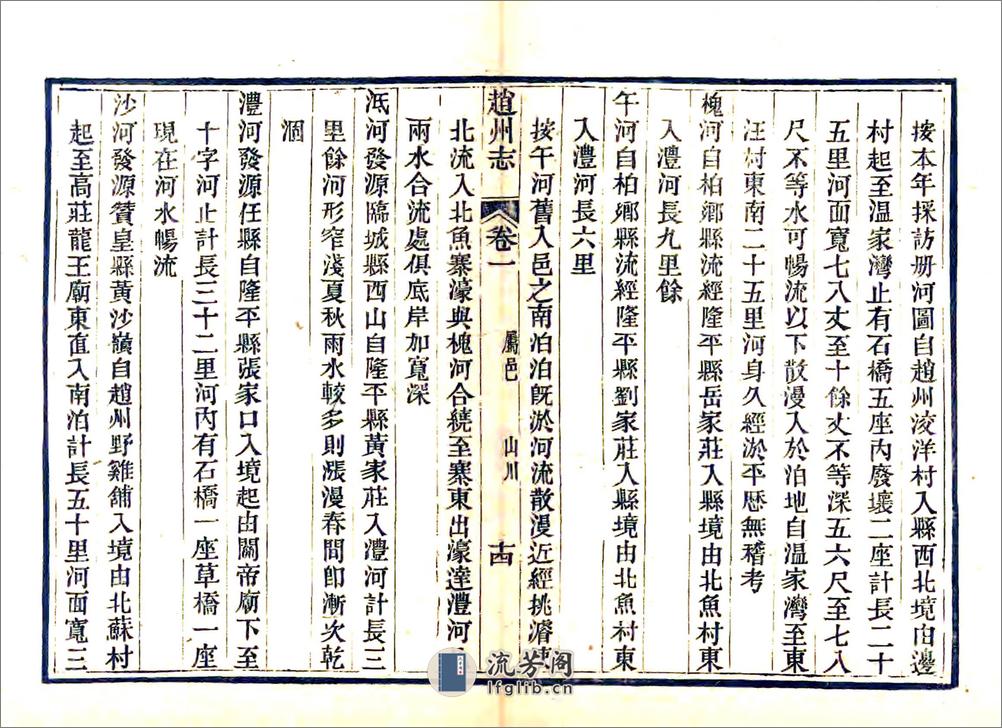 按本年採訪册河圖自趙州淩洋村入縣西北境由邊
村起至温家灣止有石橋五座內廢壞二座計長二十
五里河面寬七八丈至十餘丈不等深五六尺至七八
尺不等水可暢流以下散漫入於泊地自温家灣至東
汪村東南二十五里河身久經於平歷無稽考
槐河自柏鄉縣流經隆平縣岳家莊入縣境由北魚村東
入澧河長九里餘
午河自柏鄉縣流經隆平縣劉家莊入縣境由北魚村東
入澧河長六里
按午河舊入邑之南泊泊旣淤河流散漫近經挑濬
趙州志 卷一 屬邑 山川 十四
北流入北魚寨濠與槐河合繞至寨東出濠達澧河
兩水合流處俱底岸加寬深
泜河發源臨城縣西山自隆平縣黃家莊入澧河計長三
里餘河形窄淺夏秋雨水較多則漲漫春間卽漸次乾
涸
澧河發源任縣自隆平縣張家口入境起由關帝廟下至
十字河止計長三十二里河內有石橋一座草橋一座
現在河水暢流
沙河發源贊皇縣黃沙嶺自趙州野雞舖入境由北蘇村
起至高莊龍王廟東直入南泊計長五十里河面寬三
流芳阁
lfglib.cn